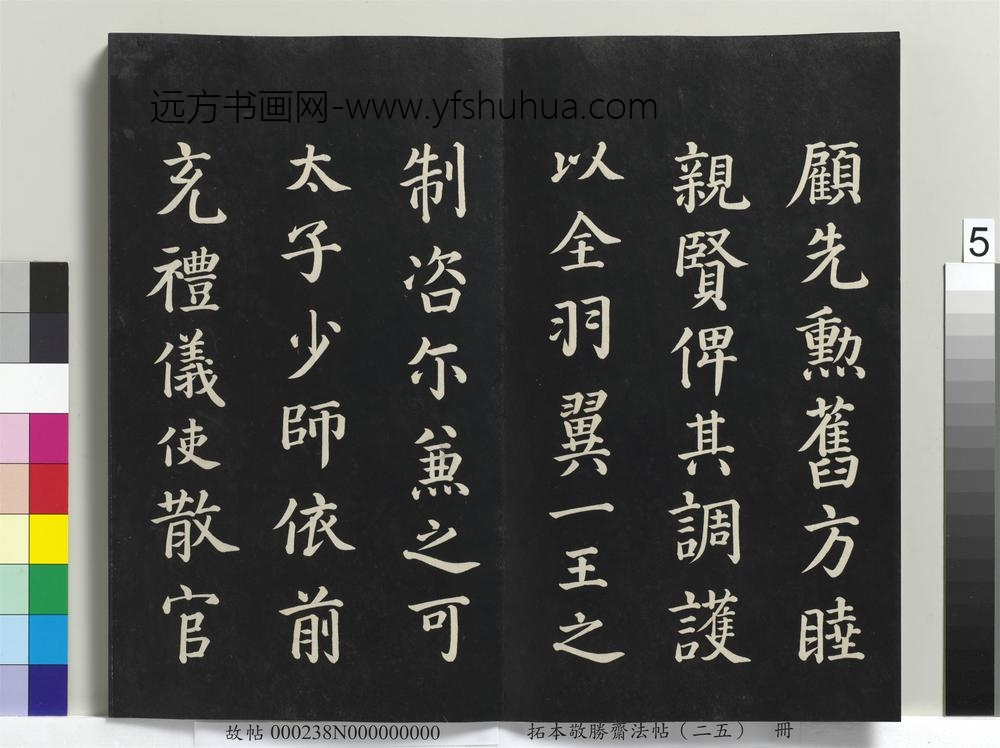 远方书画网-www.yfshuhua.com
顧先勲舊方睦
親賢俾其調護
以全羽翼一王之
制咨尓兼之可
太子少師依前
充禮儀使散官
5
故帖 000238N000000000
拓本敬勝齋法帖（二五） 冊